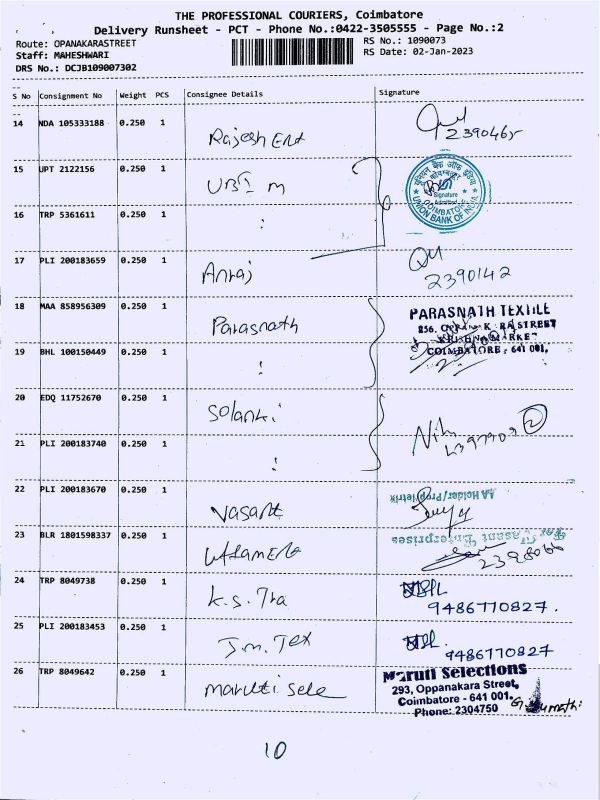 THE PROFESSIONAL COURIERS, Coimbatore
Delivery Runsheet - PCT - Phone No.:0422-3505555 - Page No.:2
Route: OPANAKARASTREET
RS No.: 1090073
Staff: MAHESHWARI
RS Date: 02-Jan-2023
DRS No.: DCJB109007302
S No Consignment No Weight PCS Consignee Details Signature
14 NDA 105333188 0.250 1 Rajesh Ent 2390465
15 UPT 2122156 0.250 1 UBI m
यूनियन बैंक ऑफ इंडिया
Signature
Admitted
COIMBATORE
UNION BANK OF INDIA
16 TRP 5361611 0.250 1 :
17 PLI 200183659 0.250 1 Anraj 2390142
18 MAA 858956309 0.250 1 Parasnath
PARASNATH TEXTILE
856, RAJ STREET
KRISHNA MARKET
COIMBATORE - 641 001.
19 BHL 100150449 0.250 1 !
20 EDQ 11752670 0.250 1 Solanki
21 PLI 200183740 0.250 1 ! 2
22 PLI 200183670 0.250 1 Vasant
For Vasant Enterprises
AA Holder/Proprietrix
23 BLR 1801598337 0.250 1 2398066
24 TRP 8049738 0.250 1 K.S. Tra
9486770827.
25 PLI 200183453 0.250 1 J.m. Tex
9486770827
26 TRP 8049642 0.250 1 maruti sele
Maruti Selections
293, Oppanakara Street,
Coimbatore - 641 001.
Phone: 2304750
10